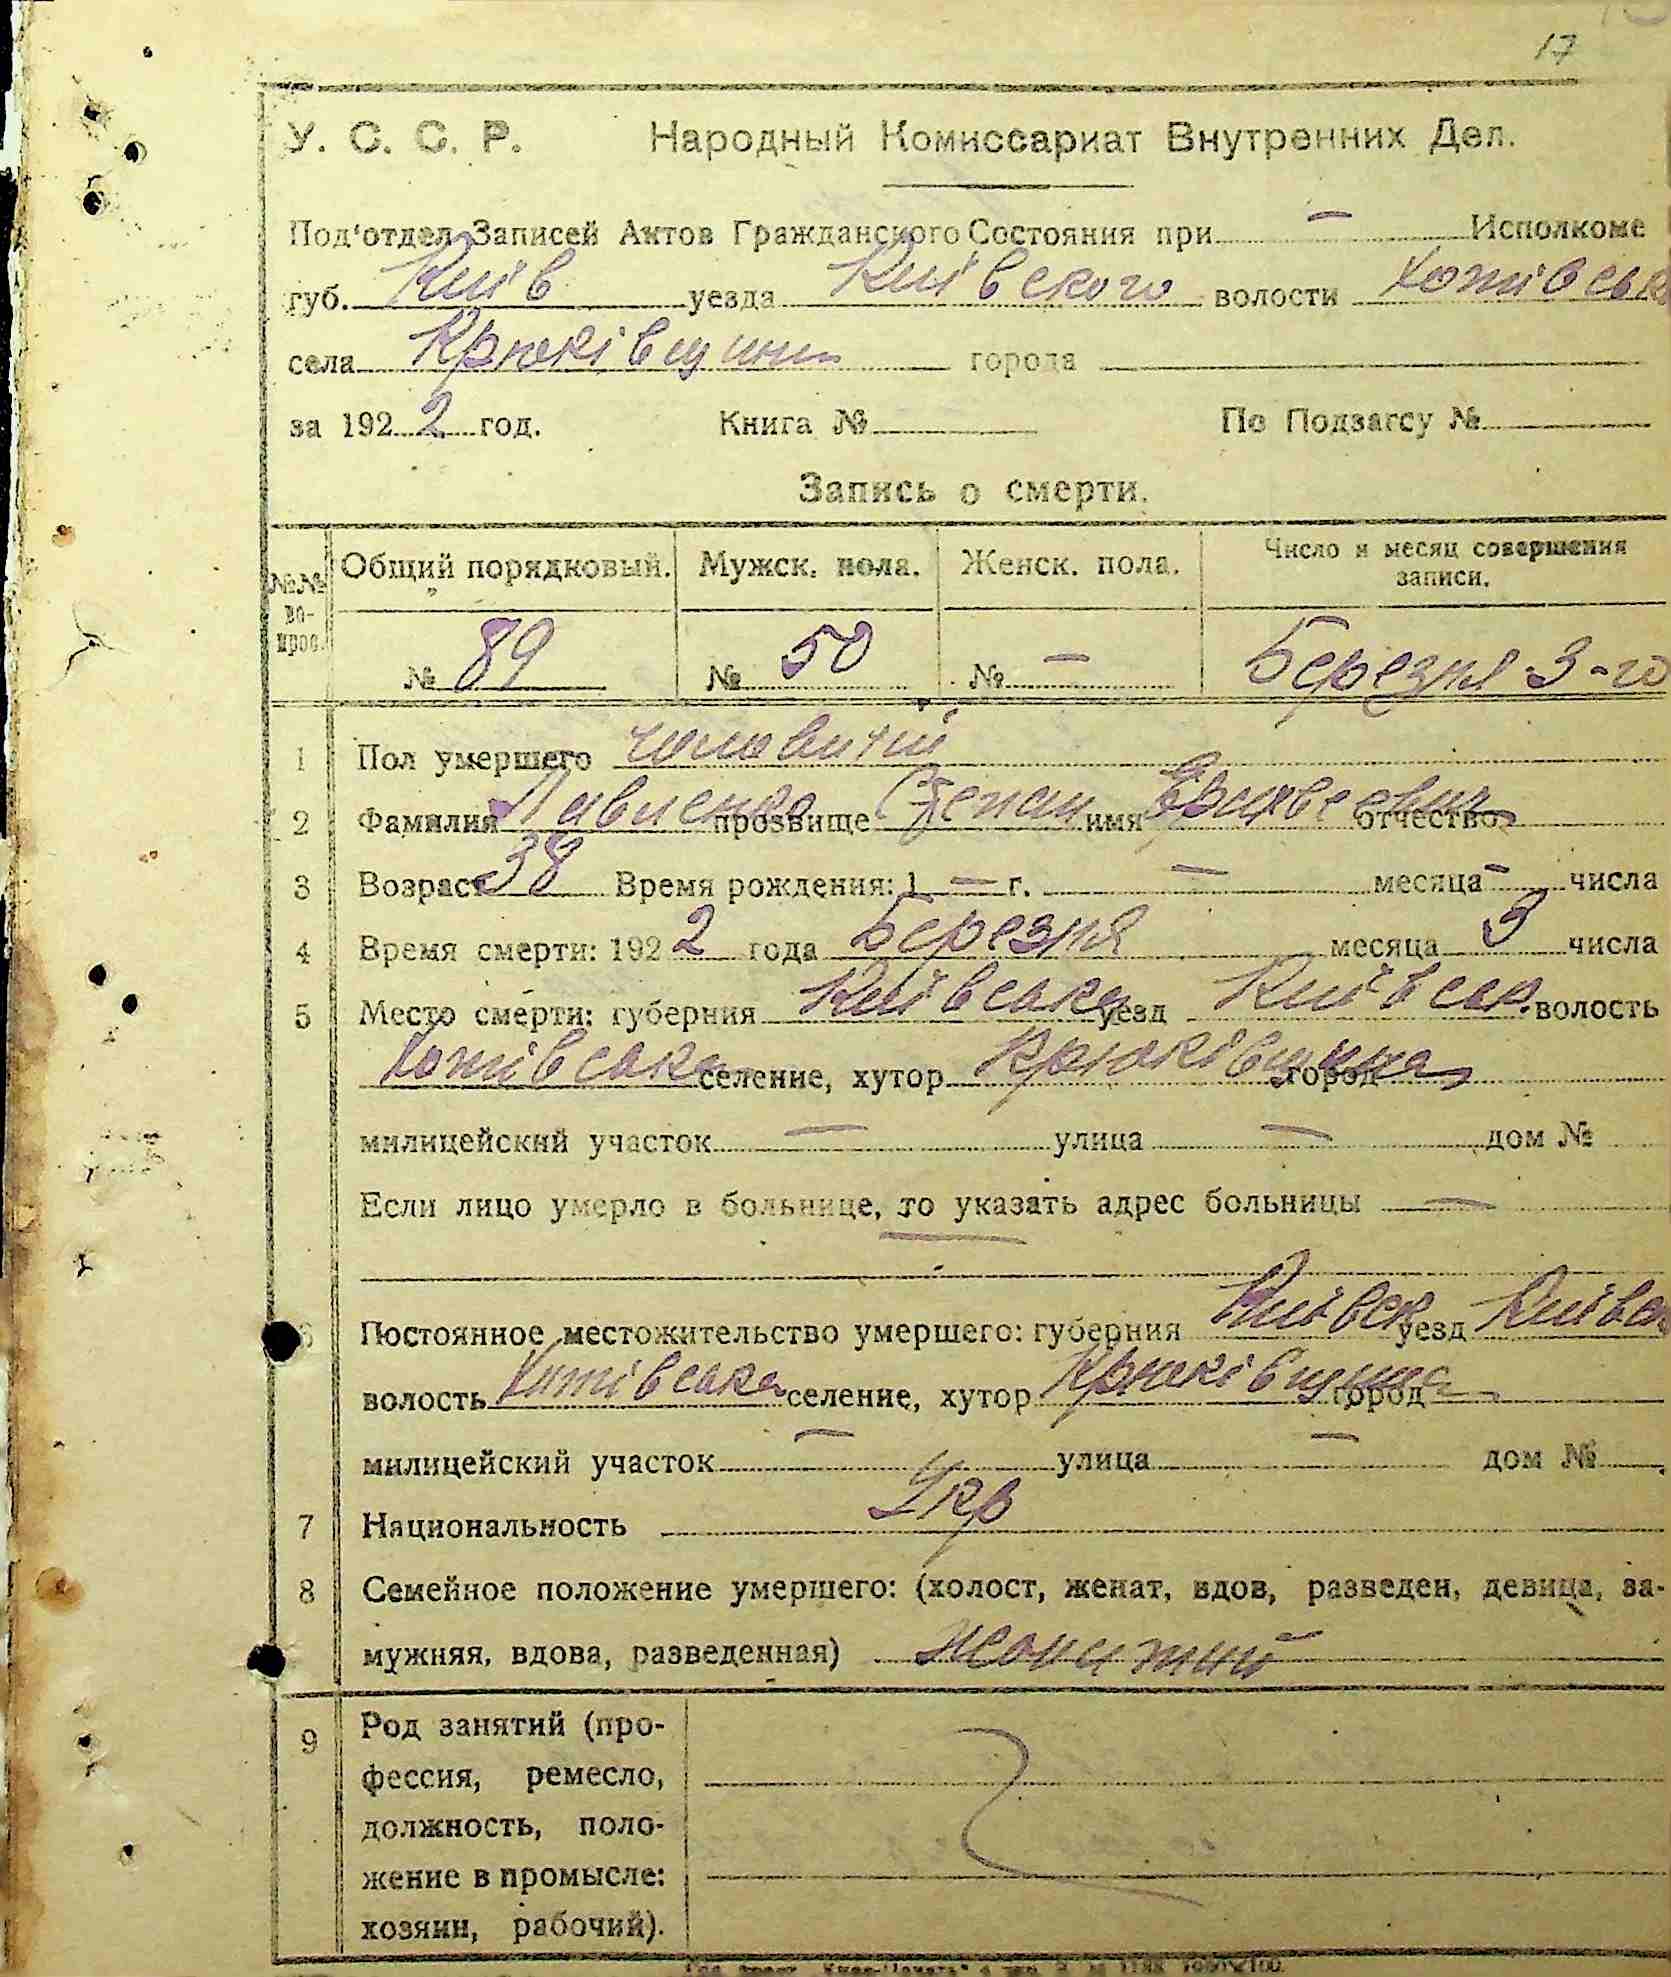 17
У. С. С. Р. Народный Комиссариат Внутренних Дел.
Под'отдел Записей Актов Гражданского Состояния при — Исполкоме
губ. Київ уезда Київского волости Хотівськ
села Крюківщини города
за 1922 год. Книга № По Подзагсу №
Запись о смерти.
№№ во-прос. Общий порядковый. Мужск. пола. Женск. пола. Число и месяц совершения записи.
№ 89 № 50 № — Березня 3-го
1 Пол умершего чоловичій
2 Фамилия Павленко прозвище Степан имя отчество
3 Возраст 38 Время рождения: 1 — г. — месяца — числа
4 Время смерти: 1922 года Березня месяца 3 числа
5 Место смерти: губерния Київська уезд Київськ. волость
Хотівська селение, хутор Крюківщина город
милицейский участок — улица — дом №
Если лицо умерло в больнице, то указать адрес больницы —
6 Постоянное местожительство умершего: губерния Київск уезд Київск
волость Хотівська селение, хутор Крюківщина город —
милицейский участок — улица — дом №
7 Национальность Укр
8 Семейное положение умершего: (холост, женат, вдов, разведен, девица, за-
мужняя, вдова, разведенная) жонитий
9 Род занятий (про-
фессия, ремесло,
должность, поло-
жение в промысле:
хозяин, рабочий).